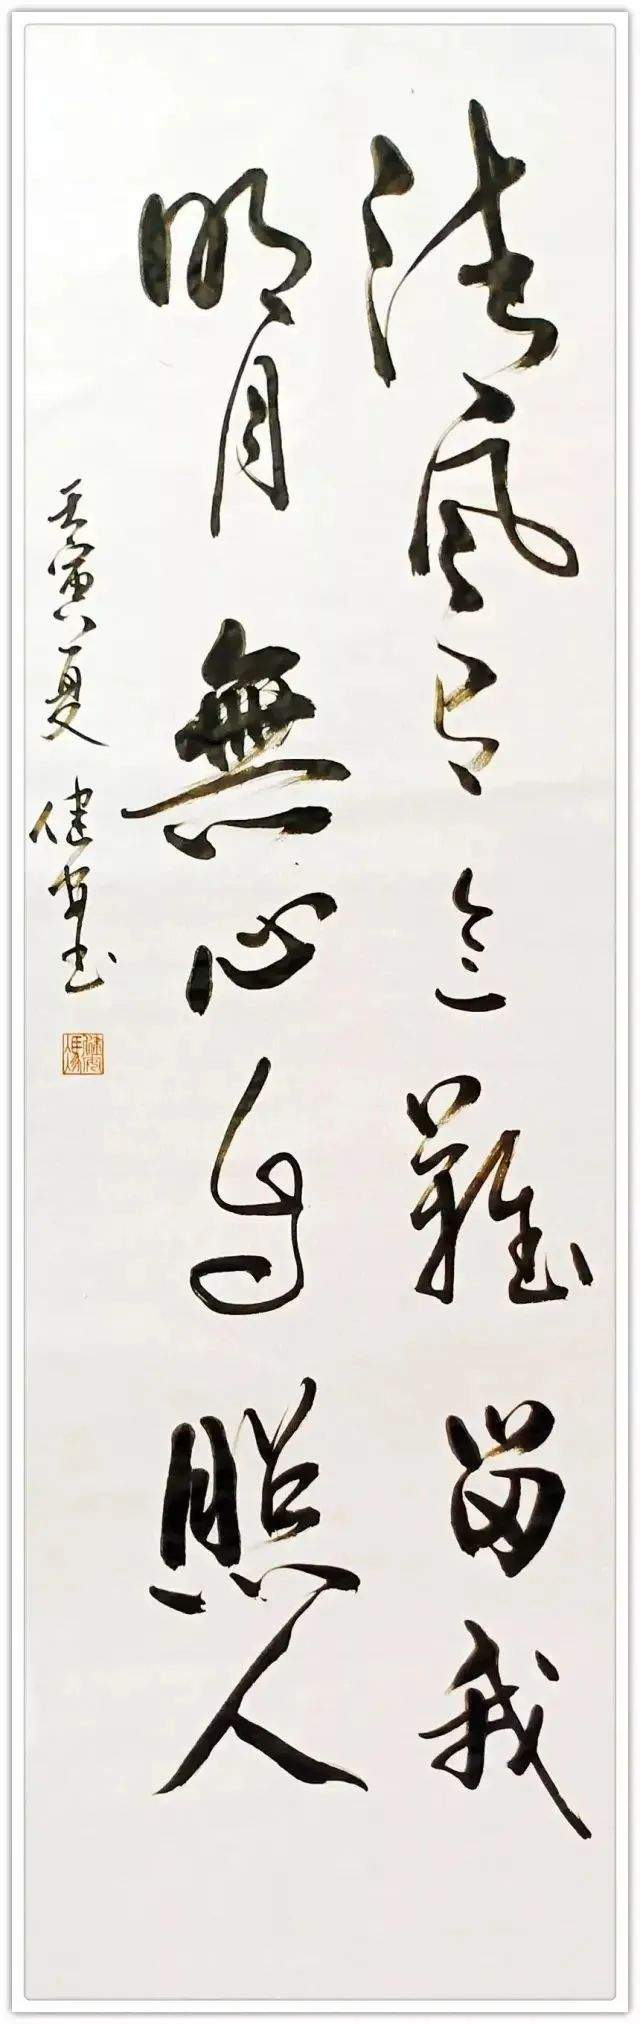 清風有意難留我
明月無心自照人
壬寅夏 健安书